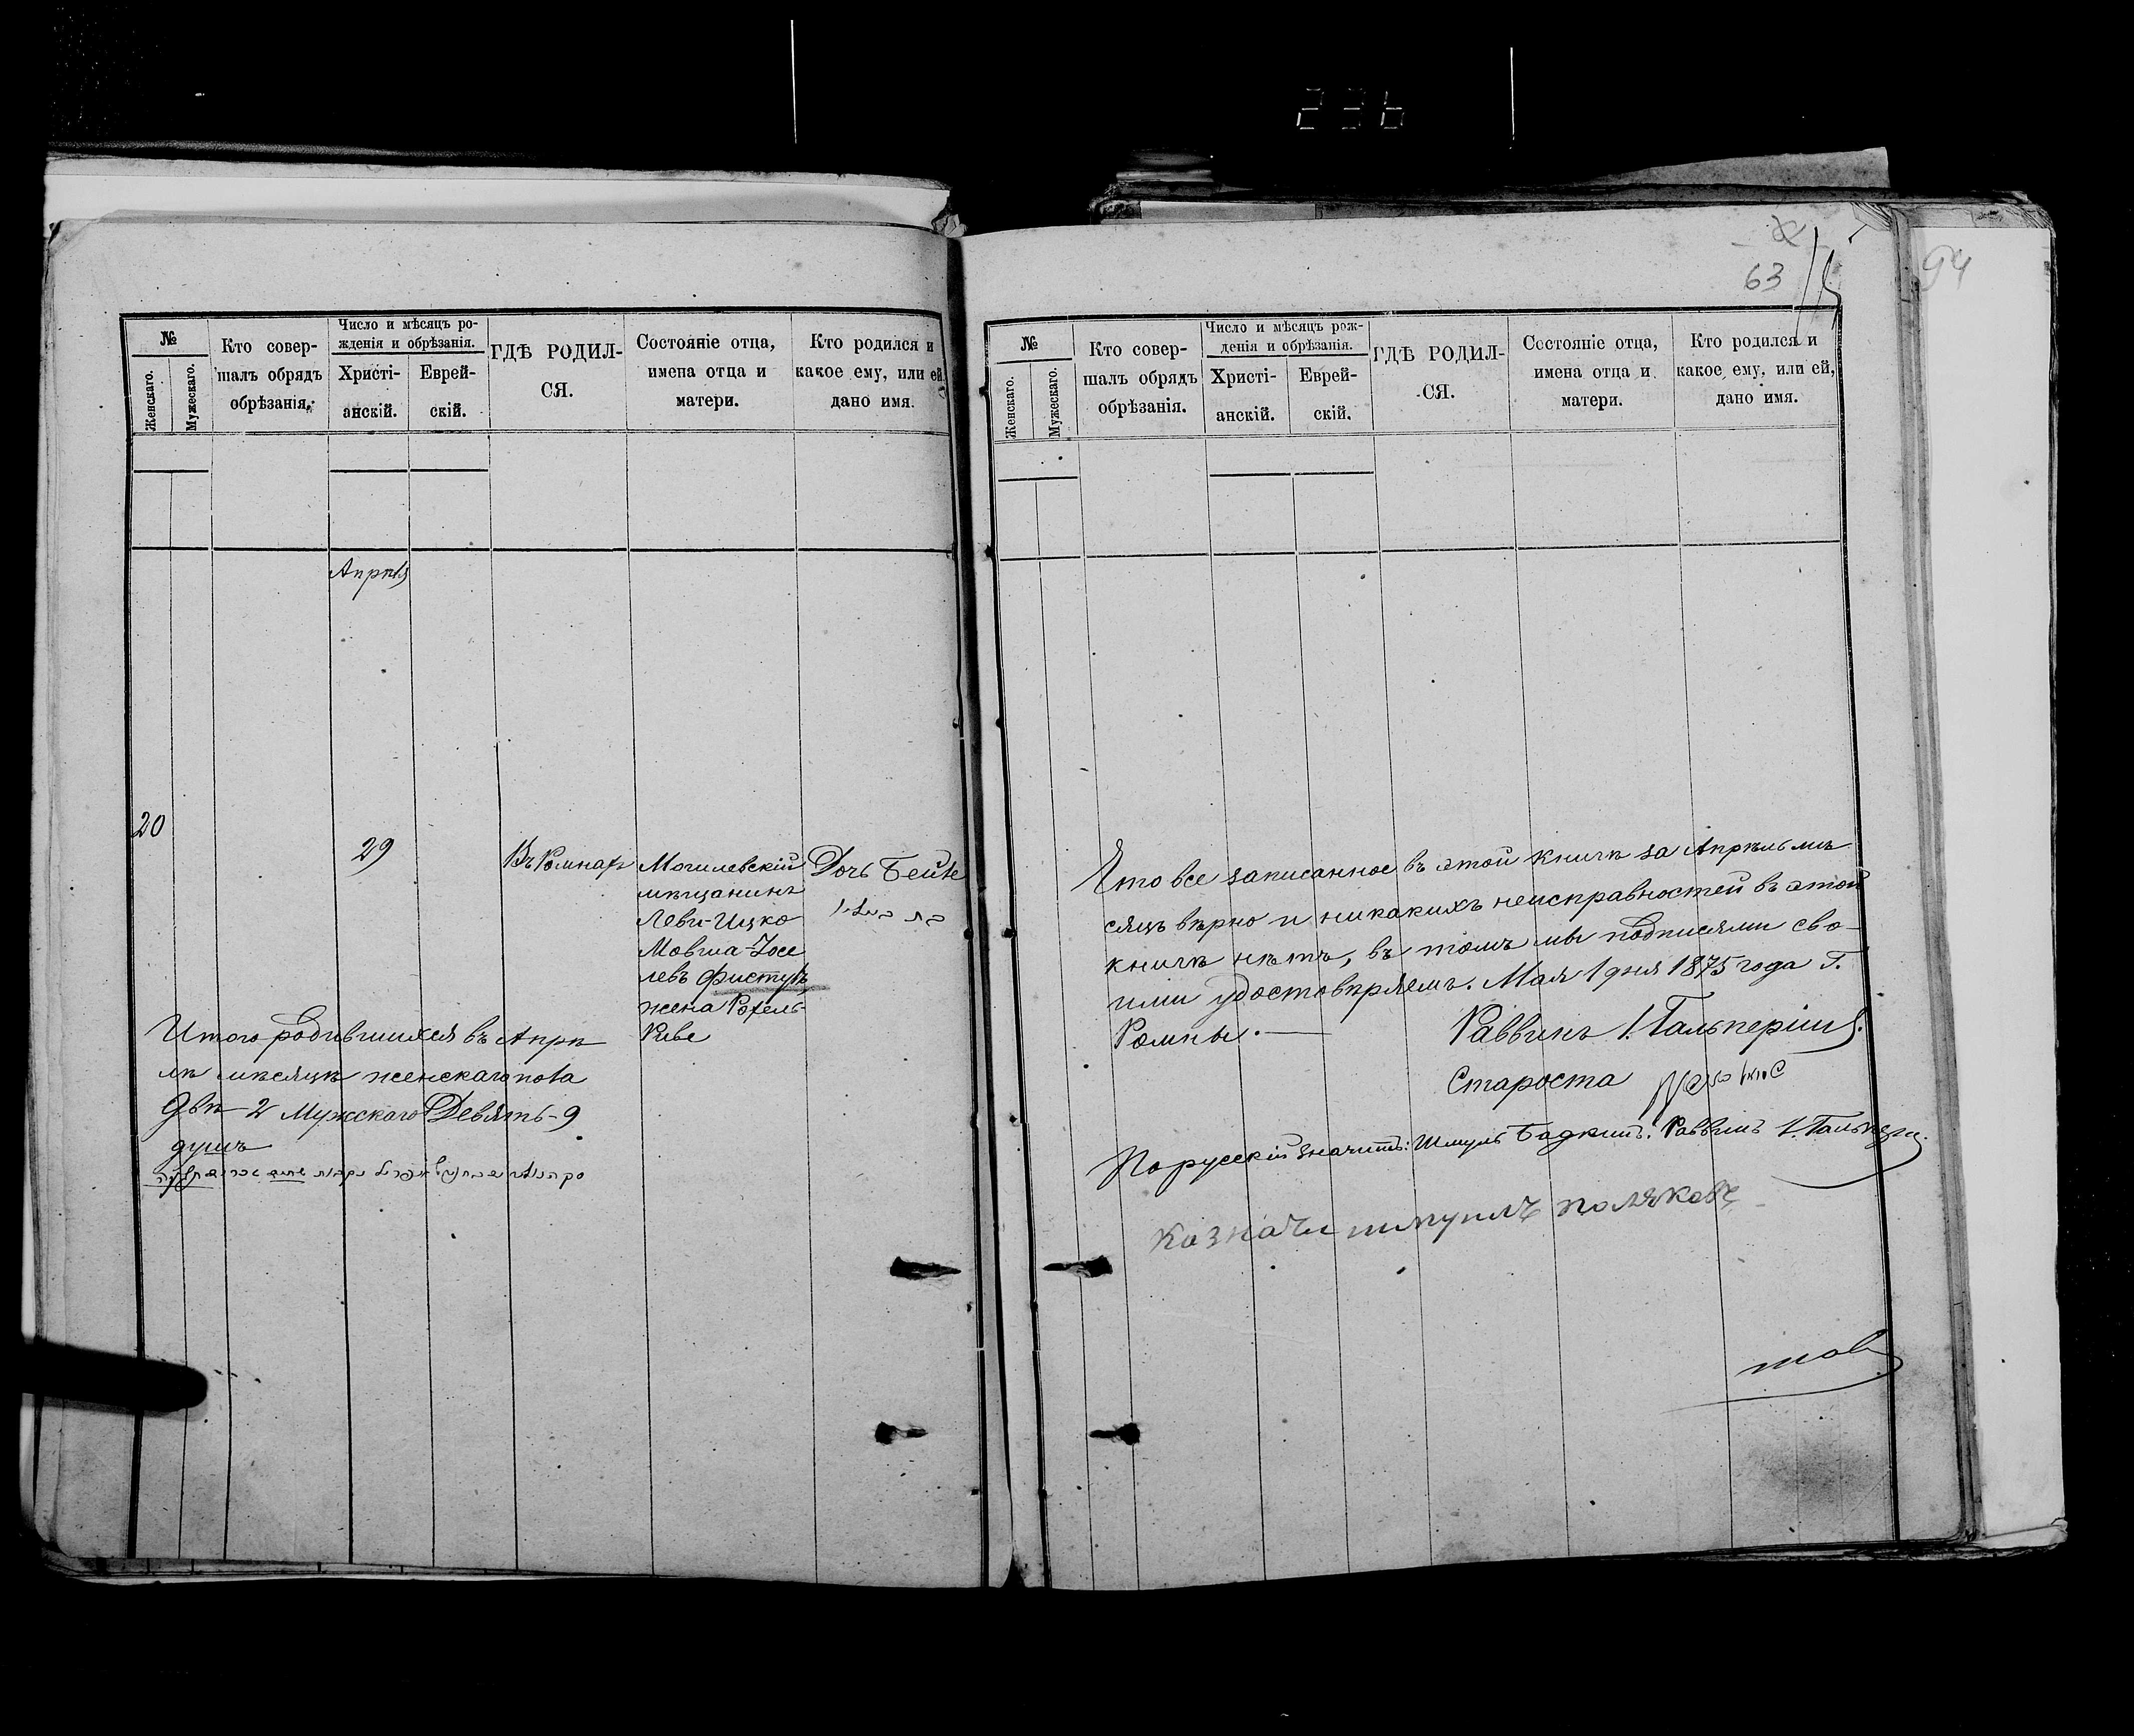 236
94
№
Женскаго.
Мужескаго.
Кто совер-
шалъ обрядъ
обрѣзанія.
Число и мѣсяцъ ро-
жденія и обрѣзанія.
Христі-
анскій.
Еврей-
скій.
ГДѢ РОДИЛ-
СЯ.
Состояніе отца,
имена отца и
матери.
Кто родился и
какое ему, или ей
дано имя.
Апрѣля
20
29
Въ Ромнахъ
Могилевскій
мѣщанинъ
Леви-Ицко
Мовша-Іосе
левъ Фистулъ
жена Рохель-
Риве
Дочь Бейле
Итого родившихся въ Апрѣ
лѣ мѣсяцѣ женскаго пола
Двѣ-2 Мужскаго Девять-9
душъ
63
№
Женскаго.
Мужескаго.
Кто совер-
шалъ обрядъ
обрѣзанія.
Число и мѣсяцъ рож-
денія и обрѣзанія.
Христі-
анскій.
Еврей-
скій.
ГДѢ РОДИЛ-
СЯ.
Состояніе отца,
имена отца и
матери.
Кто родился и
какое ему, или ей,
дано имя.
Что все записанное въ этой книгѣ за Апрѣль мѣ
сяцъ вѣрно и никакихъ неисправностей въ этой
книгѣ нѣтъ, въ томъ мы подписями сво-
ими удостовѣряемъ. Мая 1 дня 1875 года Г.
Ромны.
Раввинъ І. Гальперинъ.
Староста
По русскій значитъ: Шмуль Бадкинъ. Раввинъ І. Гальперн.
Казначи шмуилъ поляковъ